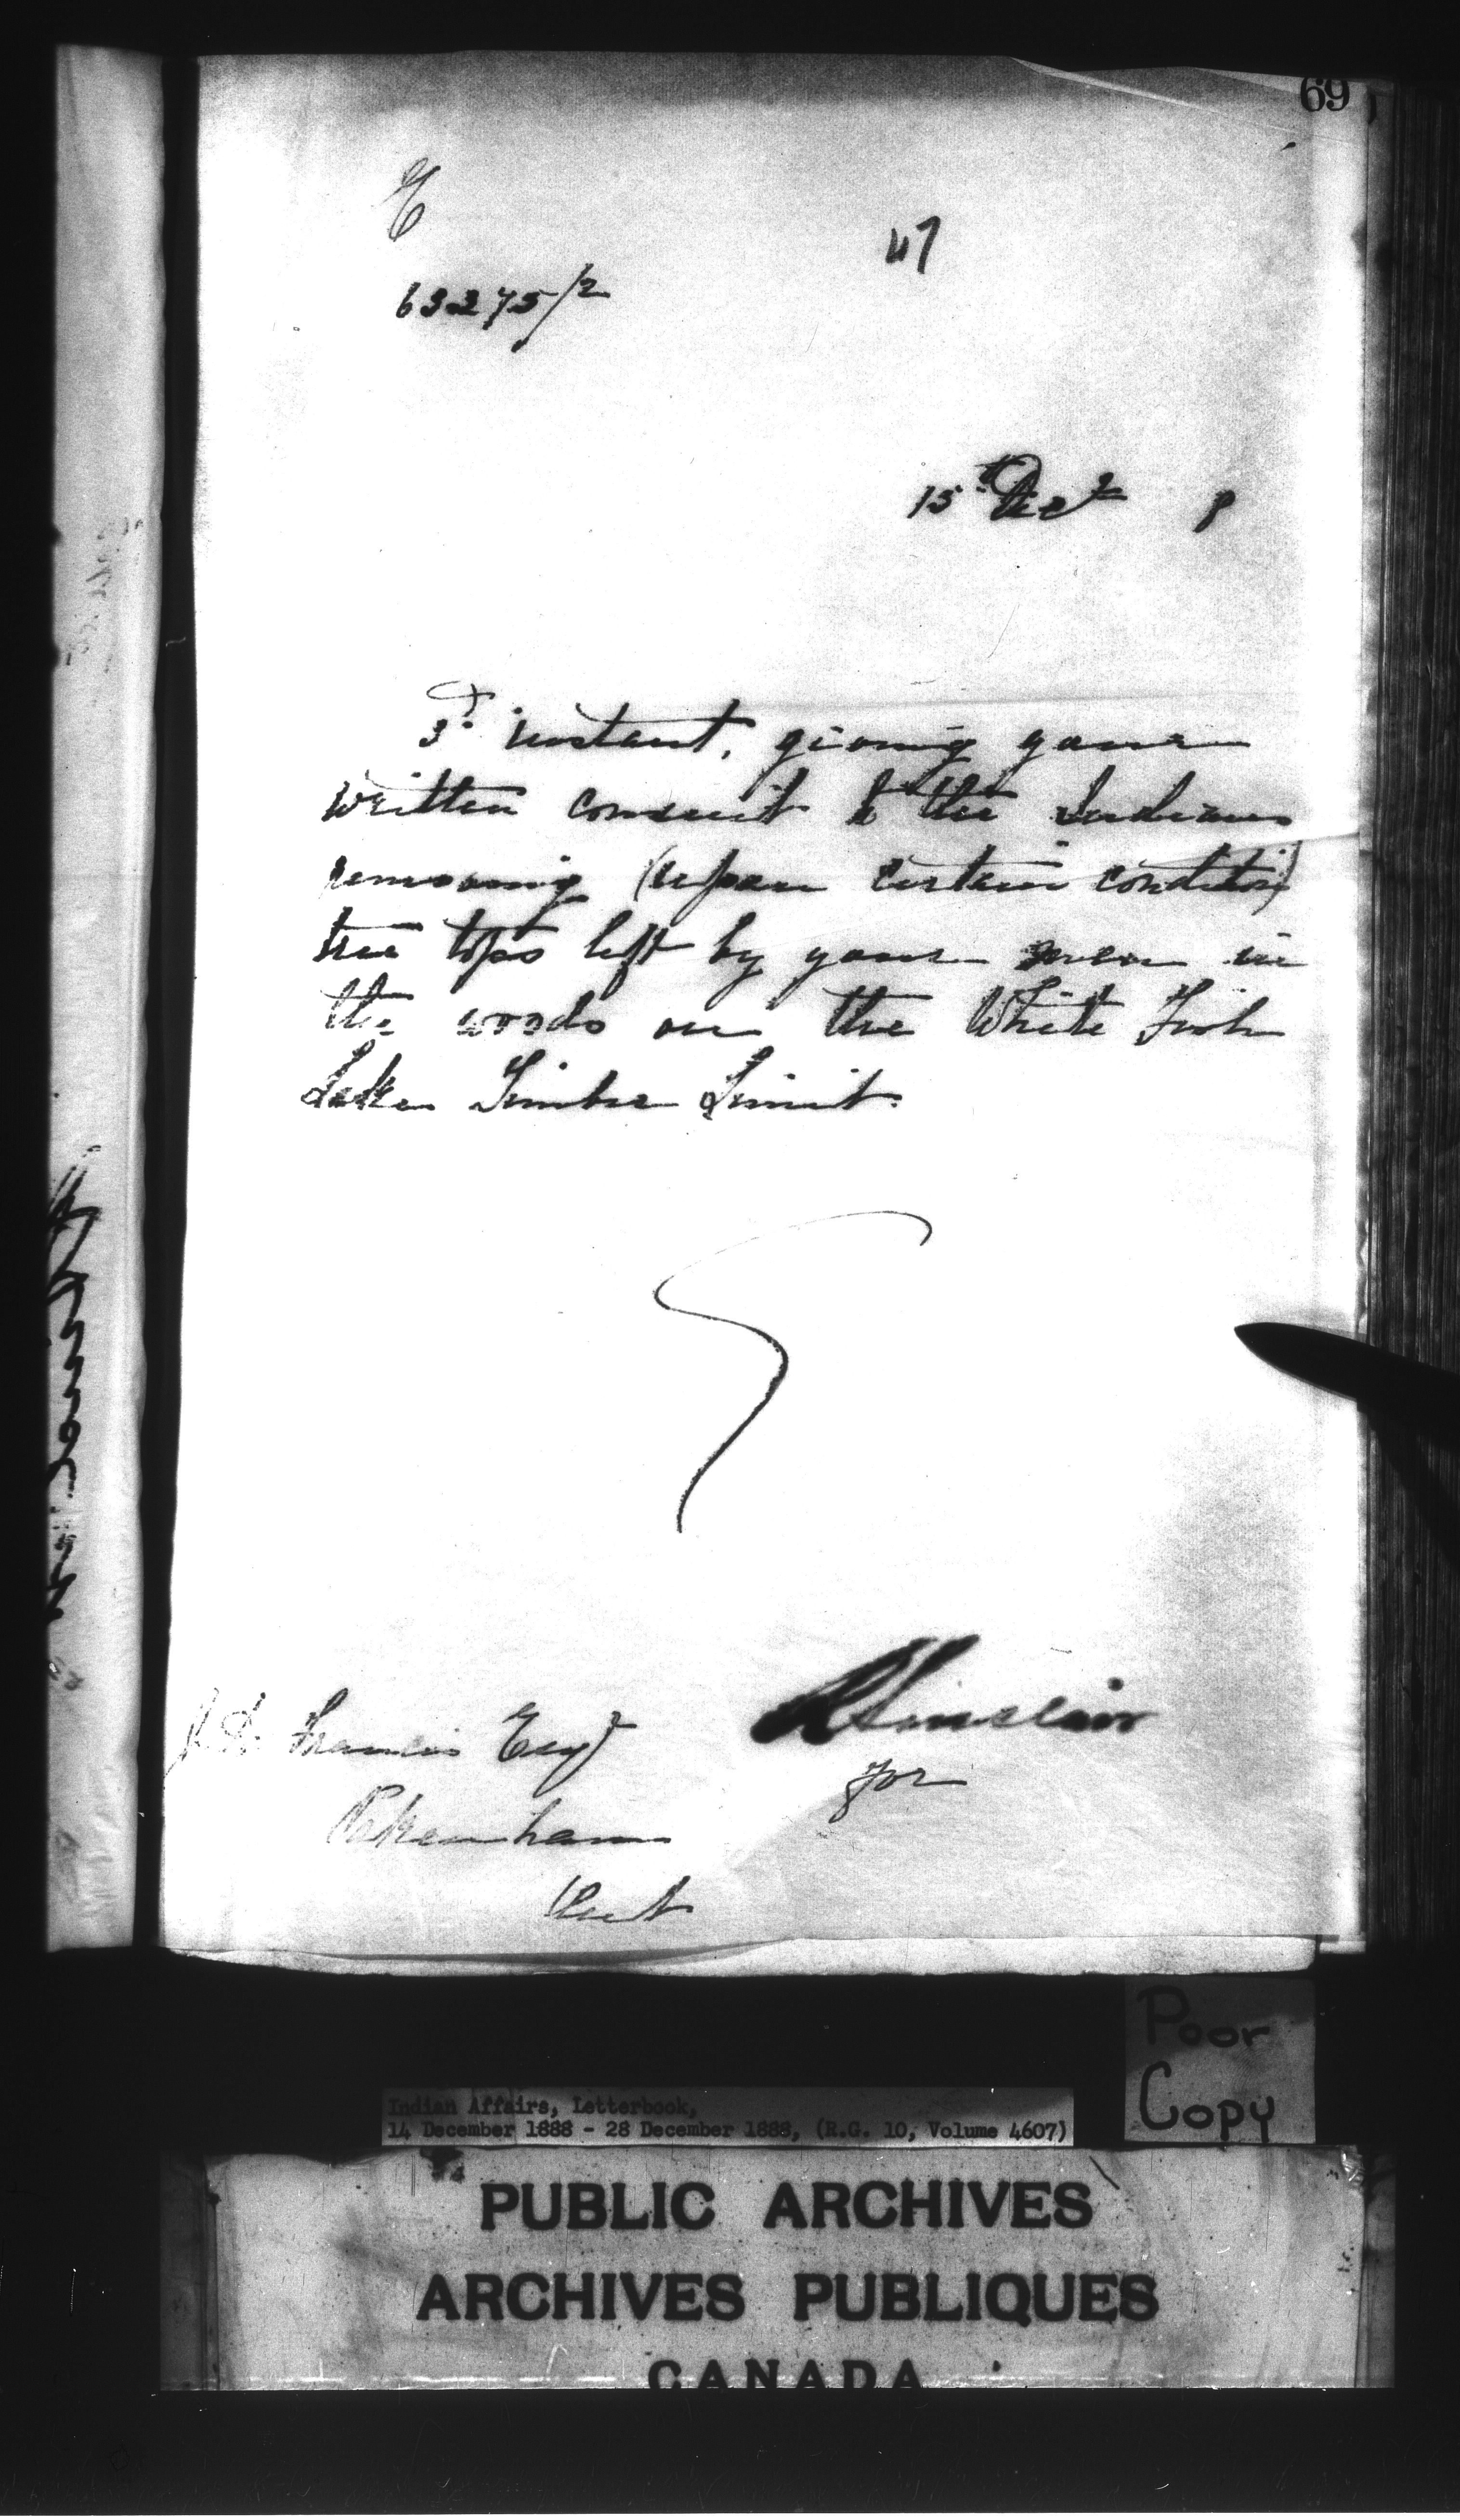 69
E
47
63275/2
15th Decr 8
3d instant, giving your
written consent to the Indians
removing (upon certain conditions)
tree tops left by your men in
the woods on the White Fish
Lake Timber Limit.
R Sinclair
for
Francis Esqr
Pakenham
Ont
Poor
Copy
Indian Affairs, Letterbook,
14 December 1888 - 28 December 1888, (R.G. 10, Volume 4607)
PUBLIC ARCHIVES
ARCHIVES PUBLIQUES
CANADA